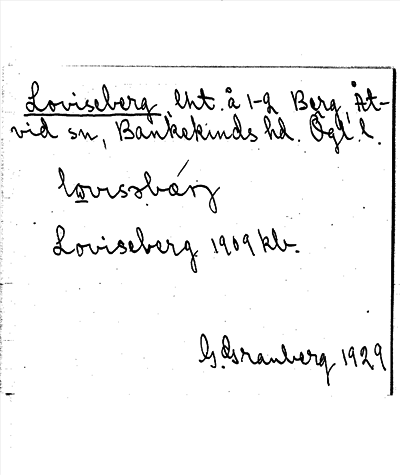 Loviseberg, lht. å 1-2 Berg, Åt-
vid sn, Bankekinds hd. Ögl. l.
lovissbærj
Loviseberg 1909 kb.
G. Granberg 1929